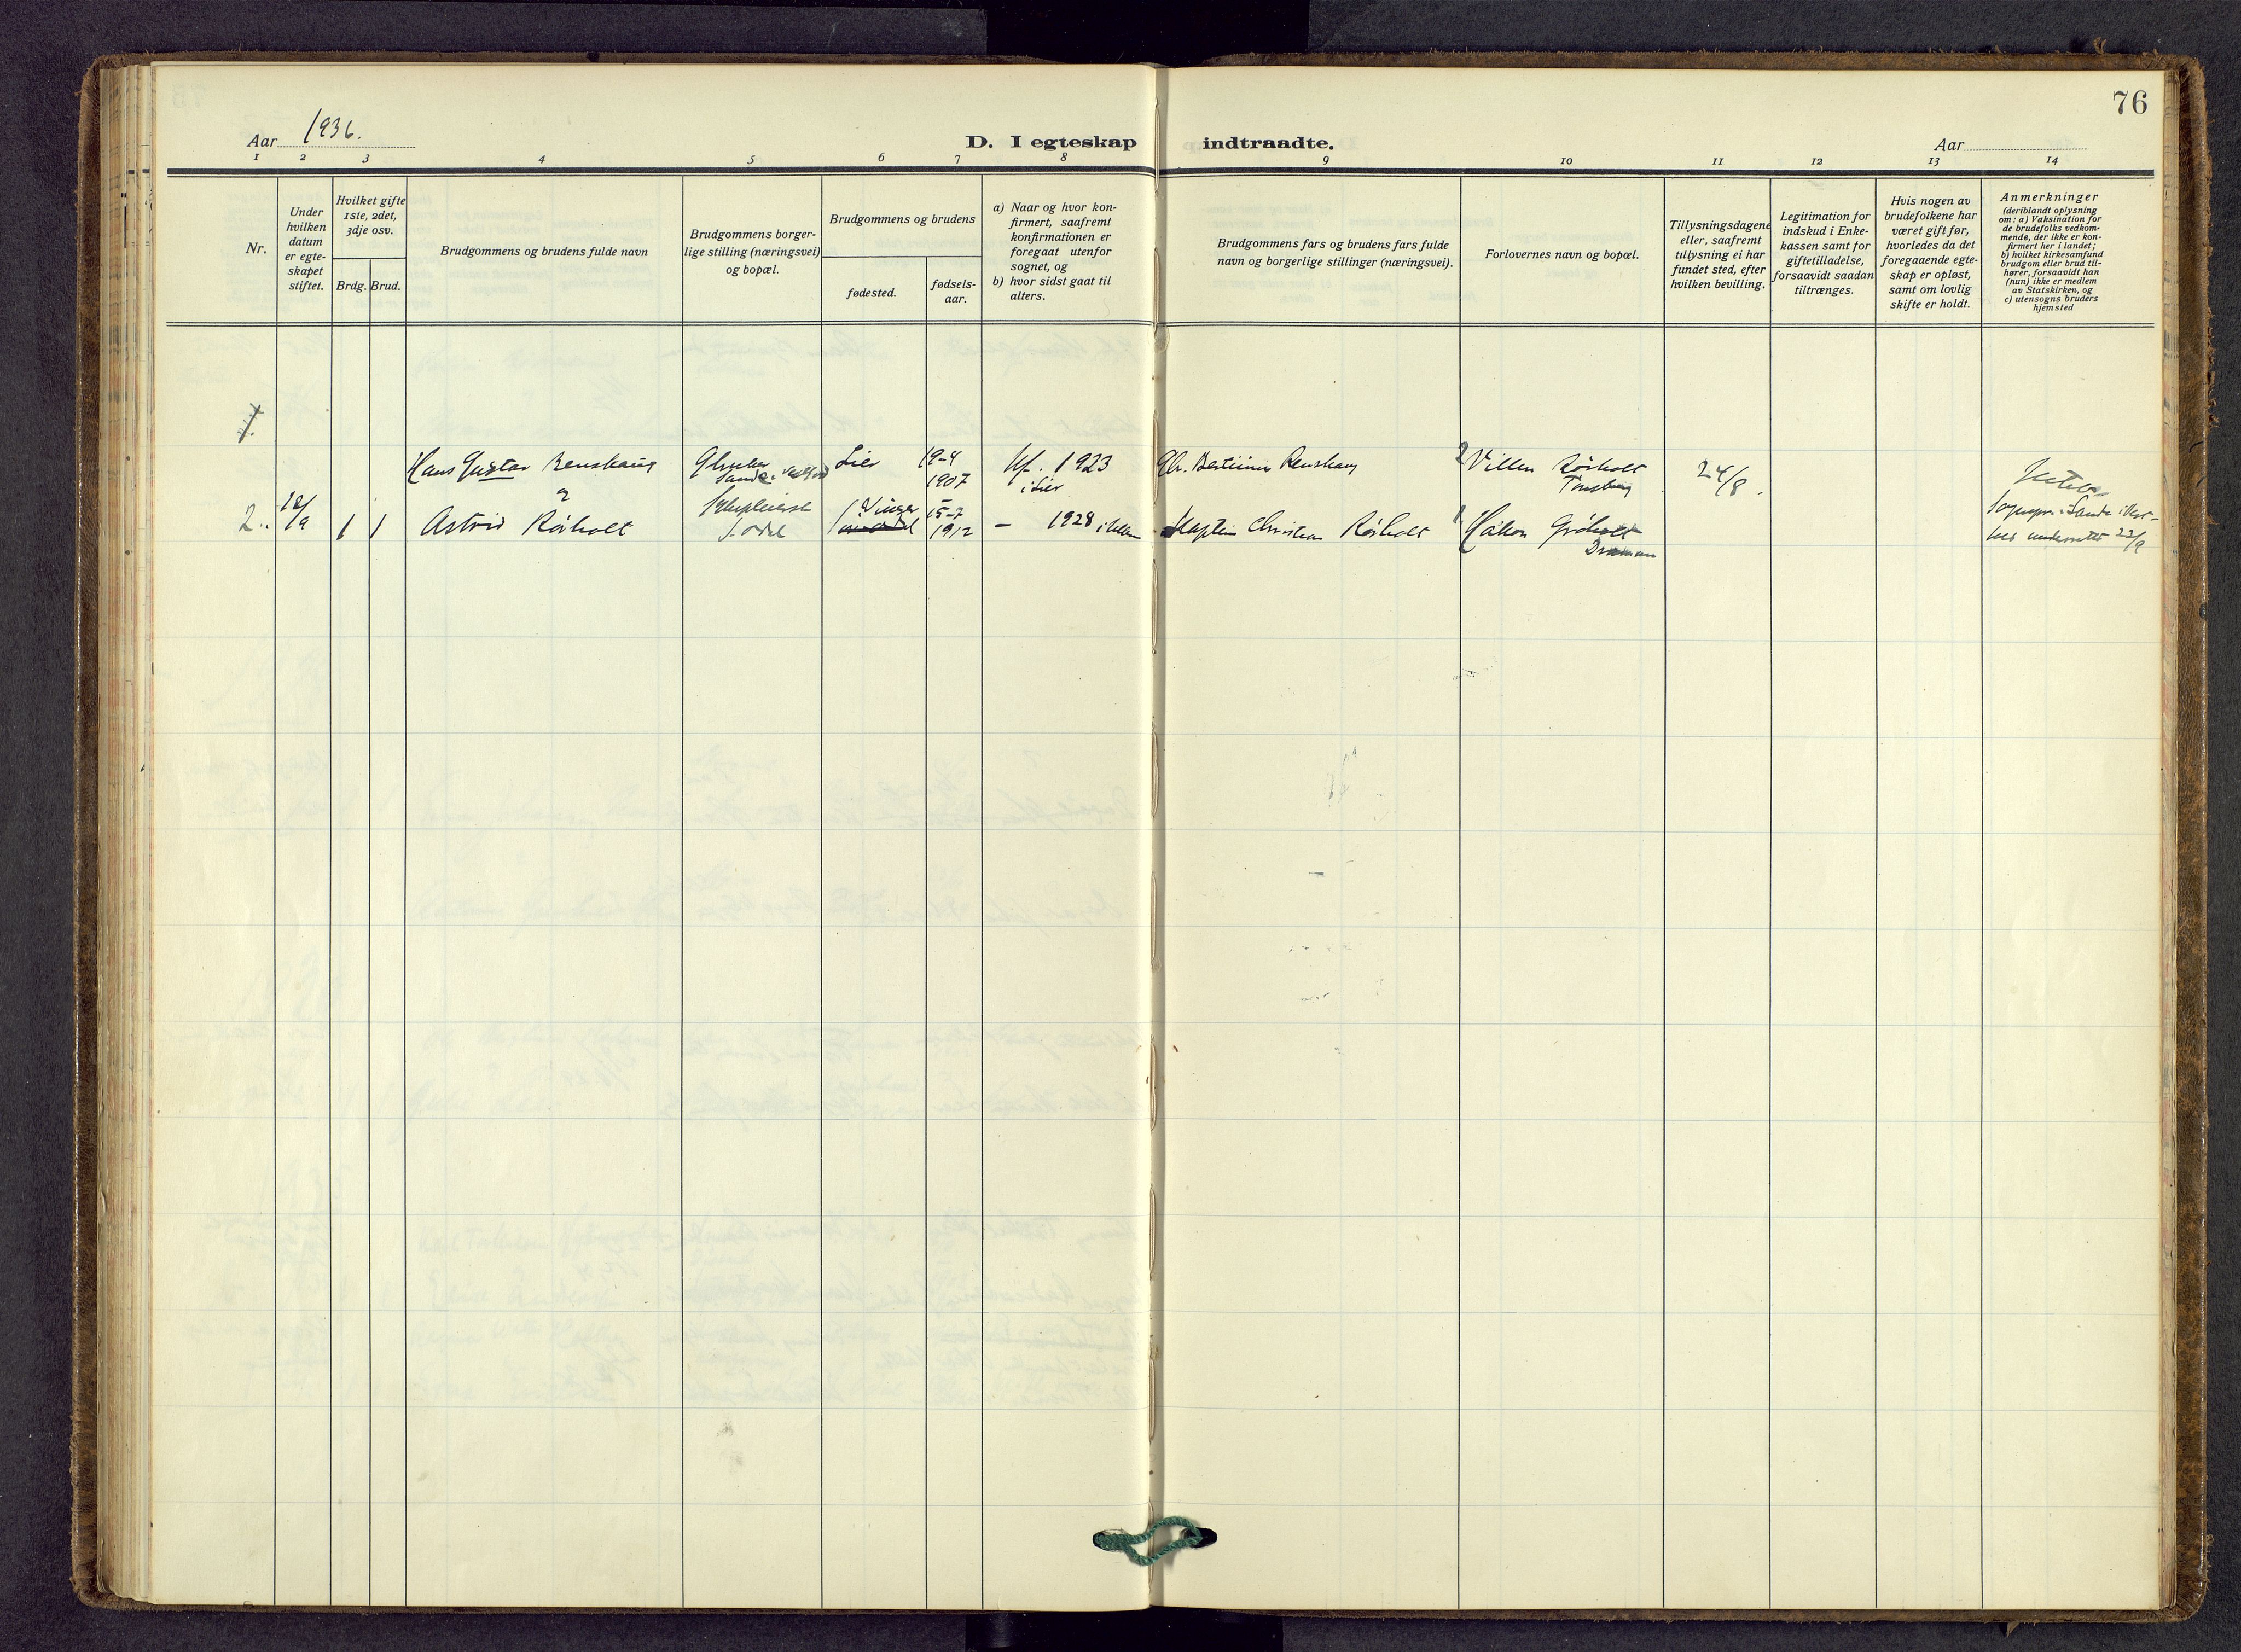 76
Aar 1936.
D. I egteskap indtraadte.
Aar
1 2 3 4 5 6 7 8 9 10 11 12 13 14
Nr.
Under
hvilken
datum
er egte-
skapet
stiftet.
Hvilket gifte
1ste, 2det,
3dje osv.
Brdg. Brud.
Brudgommens og brudens fulde navn
Brudgommens borger-
lige stilling (næringsvei)
og bopæl.
Brudgommens og brudens
fødested.
fødsels-
aar.
a) Naar og hvor kon-
firmert, saafremt
konfirmationen er
foregaat utenfor
sognet, og
b) hvor sidst gaat til
alters.
Brudgommens fars og brudens fars fulde
navn og borgerlige stillinger (næringsvei).
Forlovernes navn og bopæl.
Tillysningsdagene
eller, saafremt
tillysning ei har
fundet sted, efter
hvilken bevilling.
Legitimation for
indskud i Enke-
kassen samt for
giftetilladelse,
forsaavidt saadan
tiltrænges.
Hvis nogen av
brudefolkene har
været gift før,
hvorledes da det
foregaaende egte-
skap er opløst,
samt om lovlig
skifte er holdt.
Anmerkninger
(deriblandt oplysning
om: a) Vaksination for
de brudefolks vedkom-
mende, der ikke er kon-
firmert her i landet;
b) hvilket kirkesamfund
brudgom eller brud til-
hører, forsaavidt han
(hun) ikke er medlem
av Statskirken, og
c) utensogns bruders
hjemsted
1.
Hans Gustav Renskaug
Gbruker
Sande i Vestfold
Lier
19-4
1907
kf. 1923
i Lier
Chr. Bertinius Renskaug
2 Villen Rørholt
Tønsberg
24/8.
2. 12/9 1 1
Astrid Rørholt
S. Odal
Vinger
15-7
1912
- 1928
Kaptein Christian Rørholt
1 Håkon Grøholt
Drammen
Sognepr. i Sande i Vest-
underrettet 23/9